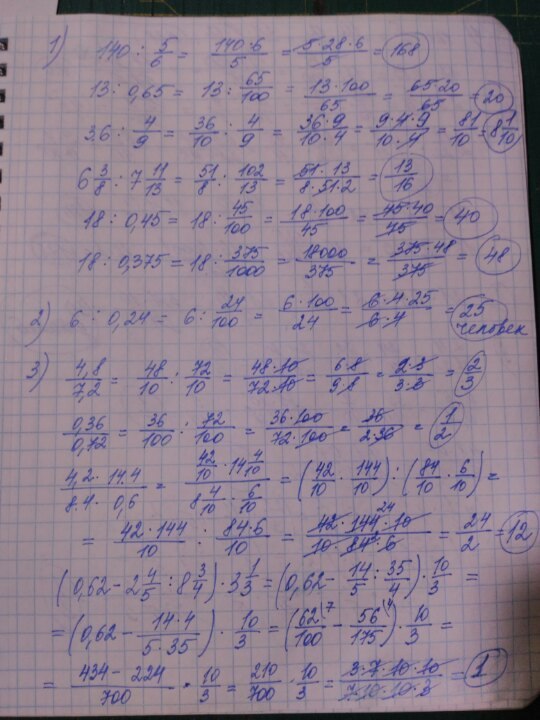 1) 140 : 5/6 = 140·6/5 = 5·28·6/5 = 168
13 : 0,65 = 13 : 65/100 = 13·100/65 = 65·20/65 = 20
3,6 : 4/9 = 36/10 : 4/9 = 36·9/10·4 = 9·4·9/10·4 = 81/10 = 8 1/10
6 3/8 : 7 11/13 = 51/8 : 102/13 = 51·13/8·51·2 = 13/16
18 : 0,45 = 18 : 45/100 = 18·100/45 = 45·40/45 = 40
18 : 0,375 = 18 : 375/1000 = 18000/375 = 375·48/375 = 48
2) 6 : 0,24 = 6 : 24/100 = 6·100/24 = 6·4·25/6·4 = 25 человек
3) 4,8/7,2 = 48/10 : 72/10 = 48·10/72·10 = 6·8/9·8 = 2·3/3·3 = 2/3
0,36/0,72 = 36/100 : 72/100 = 36·100/72·100 = 36/2·36 = 1/2
4,2·14,4/8,4·0,6 = 42/10·14 4/10/8 4/10·6/10 = (42/10·144/10) : (84/10·6/10) =
= 42·144/10 : 84·6/10 = 42·144 24·10/10·84 2·6 = 24/2 = 12
(0,62 - 2 4/5 : 8 3/4)·3 1/3 = (0,62 - 14/5 : 35/4)·10/3 =
= (0,62 - 14·4/5·35)·10/3 = (62/100 7 - 56/175 4)·10/3 =
= 434 - 224/700 · 10/3 = 210/700 · 10/3 = 3·7·10·10/7·10·10·3 = 1